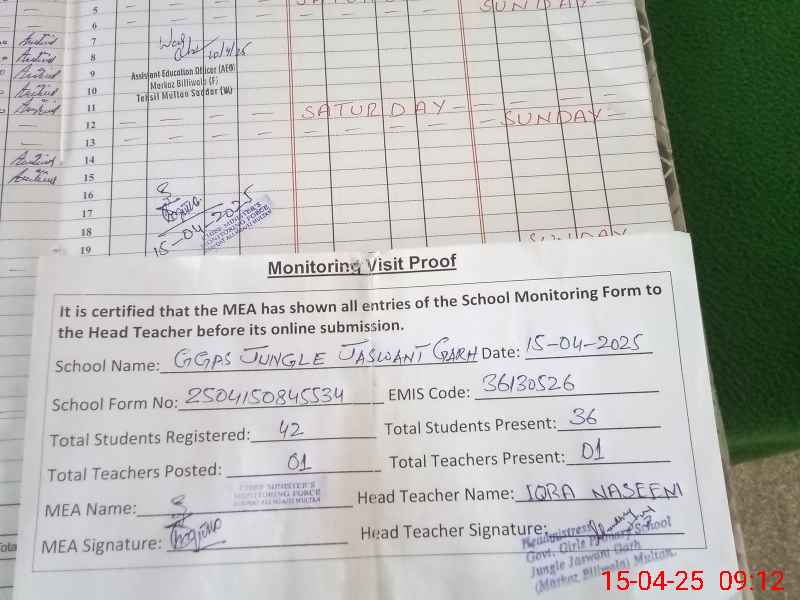 5 SUNDAY
6
7
8 10/4/25
9 Assistant Education Officer (AEO)
Markaz Billiwala (F)
10 Tehsil Multan Saddar (W)
11 SATURDAY
12 SUNDAY
13
14
15
16
17
15-04-2025
CHIEF MINISTER'S
MONITORING FORCE
18
19 SUNDAY
Monitoring Visit Proof
It is certified that the MEA has shown all entries of the School Monitoring Form to
the Head Teacher before its online submission.
School Name: GGPS JUNGLE JASWANT GARH Date: 15-04-2025
School Form No: 2504150845534 EMIS Code: 36130526
Total Students Registered: 42 Total Students Present: 36
Total Teachers Posted: 01 Total Teachers Present: 01
CHIEF MINISTER'S
MONITORING FORCE
MEA Name: Head Teacher Name: IQRA NASEEM
MEA Signature: Head Teacher Signature:
Headmistress
Govt. Girls Primary School
Jungle Jaswant Garh
(Markaz Billiwala) Multan.
15-04-25 09:12